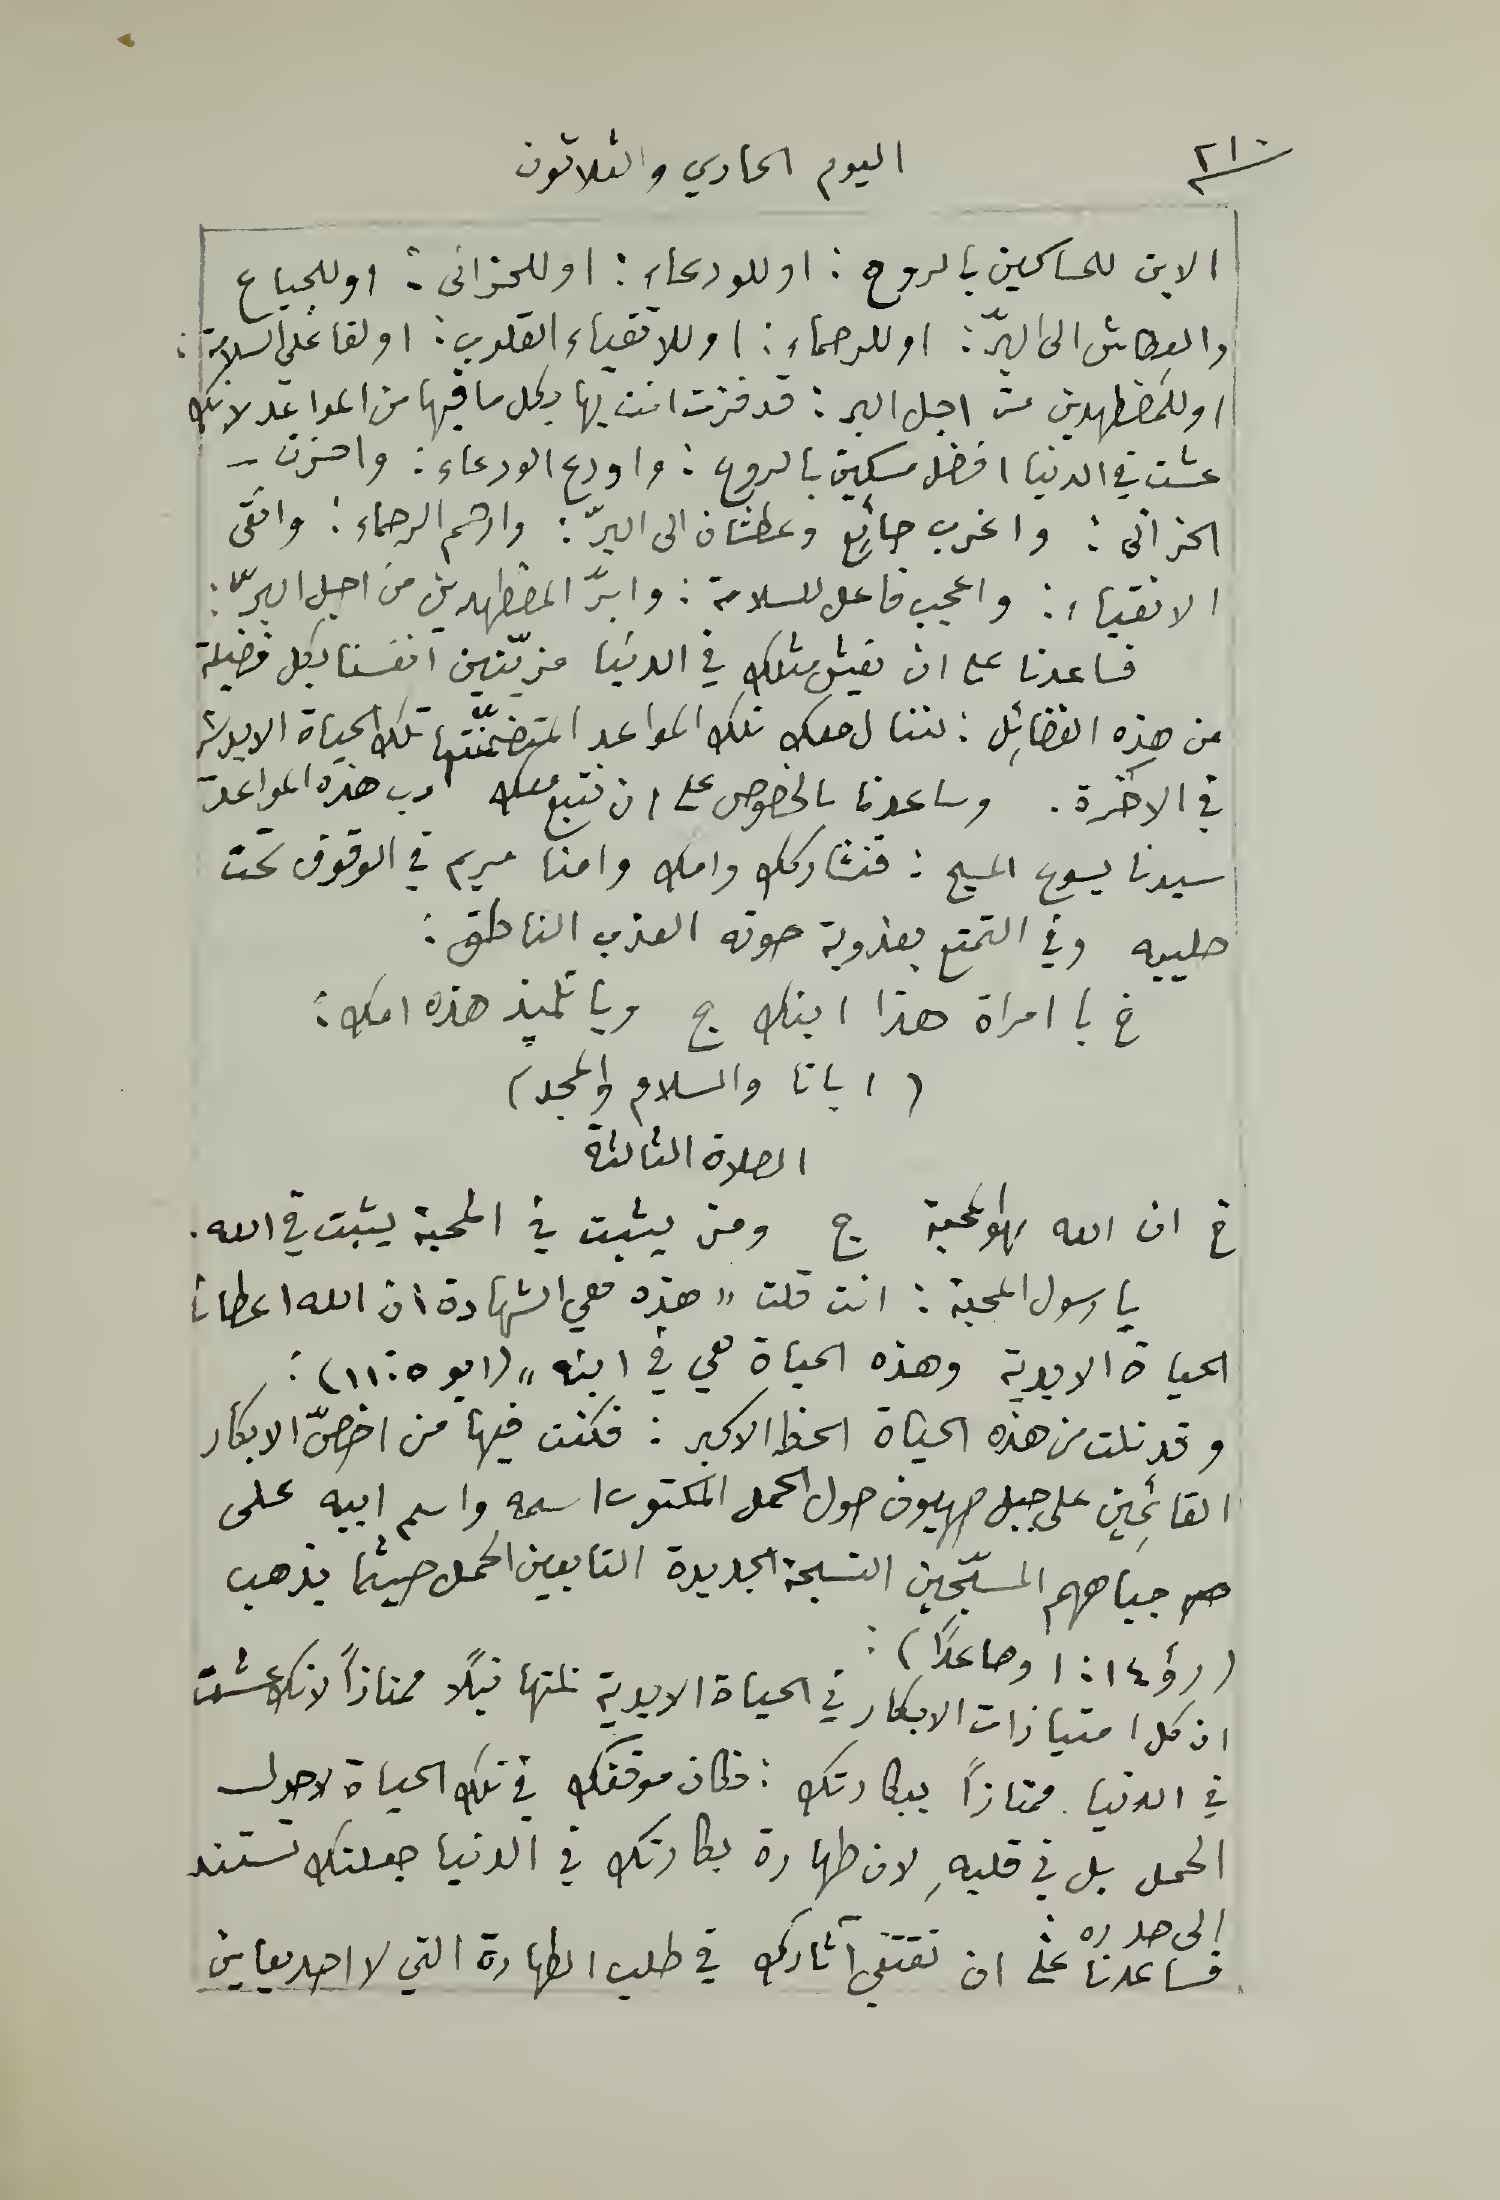 ٢١٠
اليوم الحادي والثلاثون
الابن للمساكين بالروح : او للودعاء : او للحزانى : او للجياع
والعطاش الى البرّ : او للرحماء : او للاتقياء القلوب : او لفاعلي السلامة :
او للمضطهدين من اجل البر : قد فزت انت بها بكل ما فيها من المواعد لانك
عشت في الدنيا افضل مسكين بالروح : واودع الودعاء : واحزن
الحزانى : و جائع وعطشان الى البرّ : وارحم الرحماء : واتقى
الاتقياء : واعجب فاعل للسلامة : وابرَّ المضطهدين من اجل البرّ :
فساعدنا على ان نعيش مثلك في الدنيا مزيّنين انفسنا بكل فضيلة
من هذه الفضائل : لننال معك تلك المواعد المتضمّنتها تلك الحياة الابدية
في الآخرة . وساعدنا بالخصوص على ان نتبع معك رب هذه المواعد
سيدنا يسوع المسيح : فنشاركك وامك وامنا مريم في الوقوف تحت
صليبه وفي التمتع بعذوبة صوته العذب الناطق :
خ يا امراة هذا ابنك ج ويا تلميذ هذه امك :
( ابانا والسلام والمجد )
الصلاة الثالثة
خ ان الله هو المحبة ج ومن يثبت في المحبة يثبت في الله .
يا رسول المحبة : انت قلت " هذه هي الشهادة ان الله اعطانا
الحياة الابدية وهذه الحياة هي في ابنه " (ايو ٥ : ١١) :
وقد نلت من هذه الحياة الحظ الاكبر : فكنت فيها من اخصّ الابكار
القائمين على جبل صهيون حول الحمل المكتوب اسمه واسم ابيه على
جباههم المسبّحين التسبحة الجديدة التابعين الحمل حيثما يذهب
(رؤ ١٤ : ١ وصاعدًا) :
ان كل امتيازات الابكار في الحياة الابدية نلتها نيلًا ممتازاً لانك عشت
في الدنيا ممتازاً ببكارتك : فكان موقفك في تلك الحياة لا حول
الحمل بل في قلبهِ لان طهارة بكارتك في الدنيا جعلتك تستند
الى صدره :
فساعدنا على ان نقتفي آثارك في طلب الطهارة التي لا احد يعاين